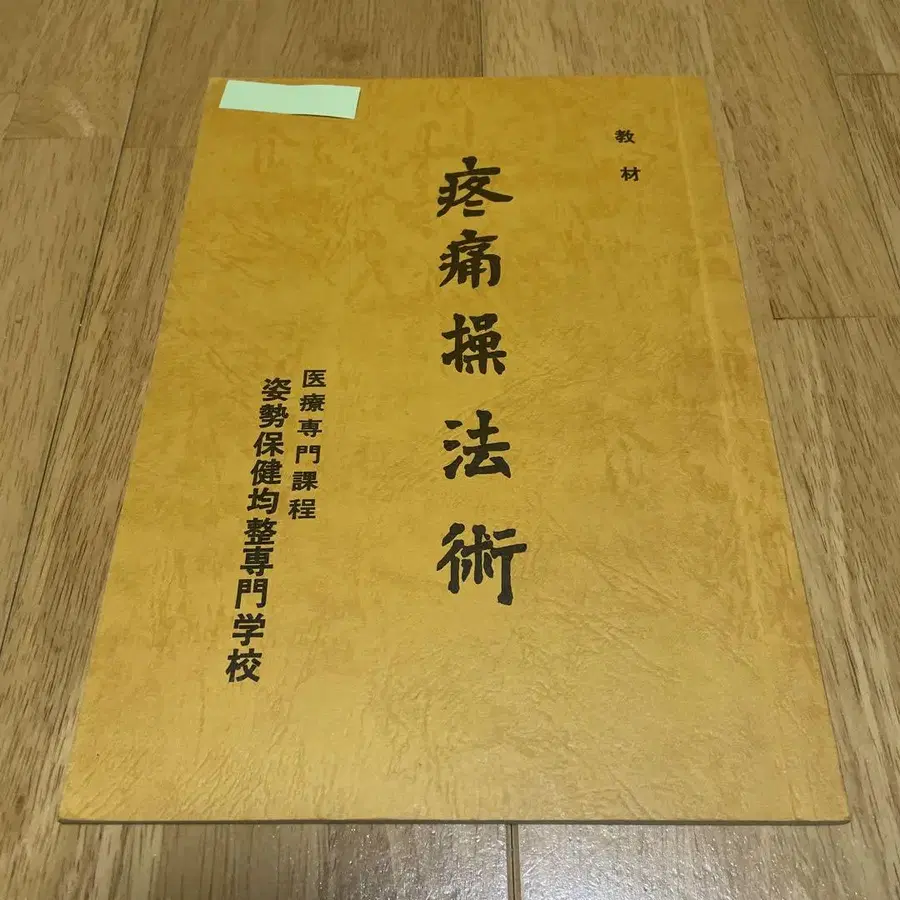 教材
疼痛操法術
医療専門課程
姿勢保健均整専門学校